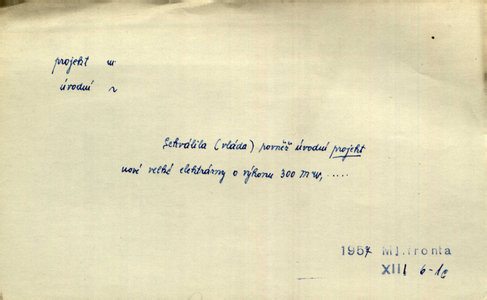 projekt m
úvodní ~
Schválila (vláda) rovněž úvodní projekt
nové velké elektrárny o výkonu 300 MW, ....
1957 Ml.fronta
XIII 6-1